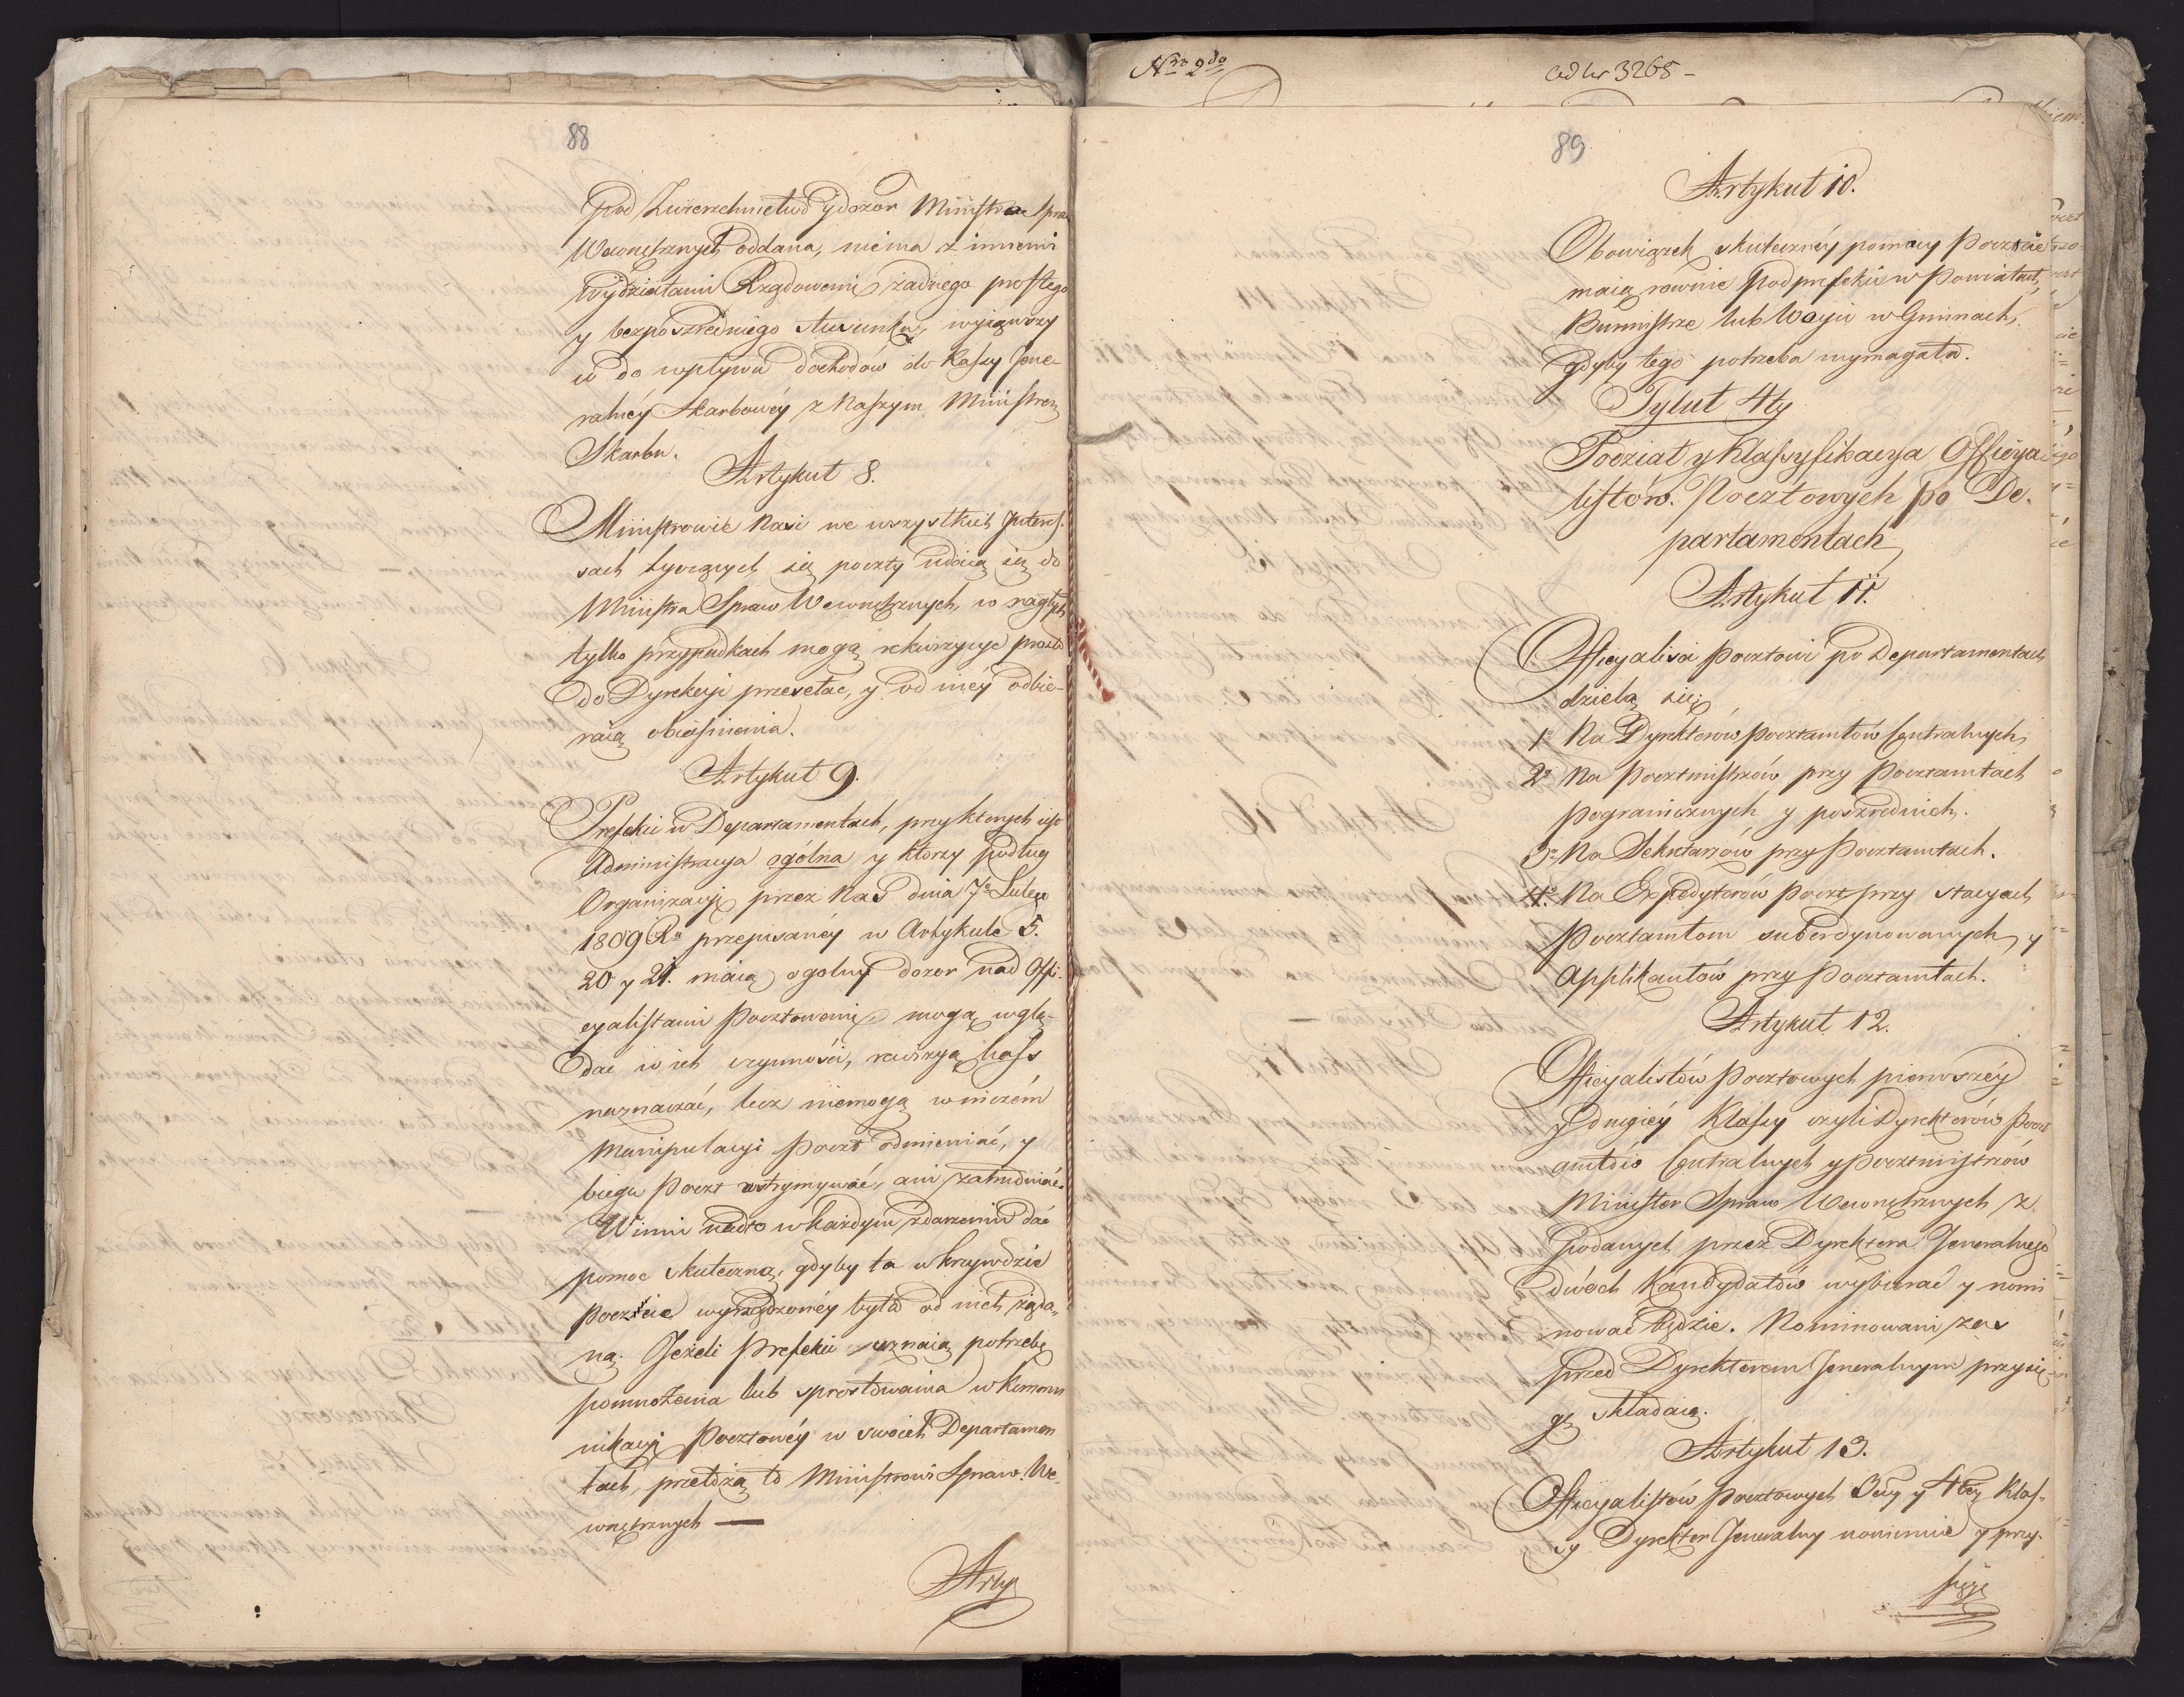 88
pod Zwierzchnictwo y dozor Ministra Spraw
Wewnętrznych oddana, niema z innemi
Wydziałami Rządowemi żadnego prostego
y bezpośredniego stusunku, wyiąwszy
co do wpływu dochodów do Kassy Jene-
ralnéy Skarbowéy z Naszym Ministrem
Skarbu.
Artykuł 8.
Ministrowie Nasi we wszystkich Interes-
sach tyczących się poczty udaią się do
Ministra Spraw Wewnętrznych, w nagłych
tylko przypadkach mogą rekwizycye prosto
do Dyrekcyi przesełać, y od niéy odbie-
raią obiaśnienia.
Artykuł 9.
Prefekci w Departamentach, przy których iest
Administracya ogólna y którzy podług
Organizacyi przez Nas dnia 7º Lutego
1809 Ru przepisanéy w Artykule 5.
20 y 21. maią ogolny dozor nad Offi-
cyalistami Pocztowemi, mogą wglą-
dać w ich czynności, rewizyą kass
naznaczać, lecz niemogą w niczém
Manipulacyi Poczt odmieniać, y
biegu Poczt wstrzymywać, ani zatrudniać.
Winni nadto w każdym zdarzeniu dać
pomoc skuteczną, gdyby ta w krzywdzie
Poczcie wyrządzonéy była od nich żąda-
ną. Jeżeli Prefekci uznaią potrzebę
pomnożenia lub sprostowania w kommu
nikacyi Pocztowéy w swoich Departamen
tach, przełożą to Ministrowi Spraw We-
wnętrznych —
Arty
Nro 2do
ad Nr 3265 -
89
Artykuł 10.
Obowiązek skutecznéy pomocy Poczcie
maią równie Podprefekci w Powiatach,
Burmistrze lub Woyci w Gminach,
gdyby tego potrzeba wymagała.
Tytuł 4ty
Podział y Klassyfikacya Officya-
listów Pocztowych po De-
partamentach
Artykuł 11.
Officyaliści Pocztowi po Departamentach
dzielą się;
1º Na Dyrektorów Pocztamtów Centralnych,
2º Na Pocztmistrzów przy Pocztamtach
Pogranicznych y pośrednich.
3º Na Sekretarzów przy Pocztamtach.
4º Na Expedytorów Poczt przy stacyach
Pocztamtom subordynowanych, y
Applikantów przy Pocztamtach.
Artykuł 12.
Officyalistów Pocztowych pierwszéy
y drugiéy Klassy czyli Dyrektorów Poczt
amtów Centralnych y Pocztmistrzów
Minister Spraw Wewnętrznych z
podanych przez Dyrektora Jeneralnego
dwóch Kandydatów wybierać y nomi
nować będzie. Nominowani zas
przed Dyrektorem Jeneralnym przysię-
gę składaią.
Artykuł 13.
Officyalistów Pocztowych 3ciy y 4téy Klas-
sy Dyrektor Jeneralny nominuie y przy-
sięgę